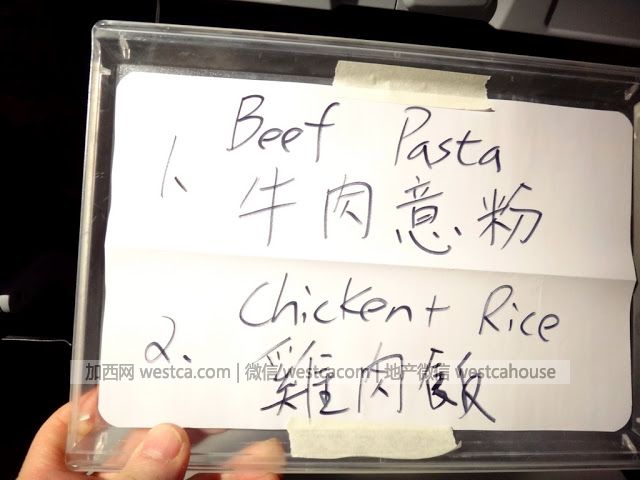 1. Beef Pasta
牛肉意粉
Chicken + Rice
2.
加西网 westca.com | 微信 westcacom | 地产微信 westcahouse
雞肉飯